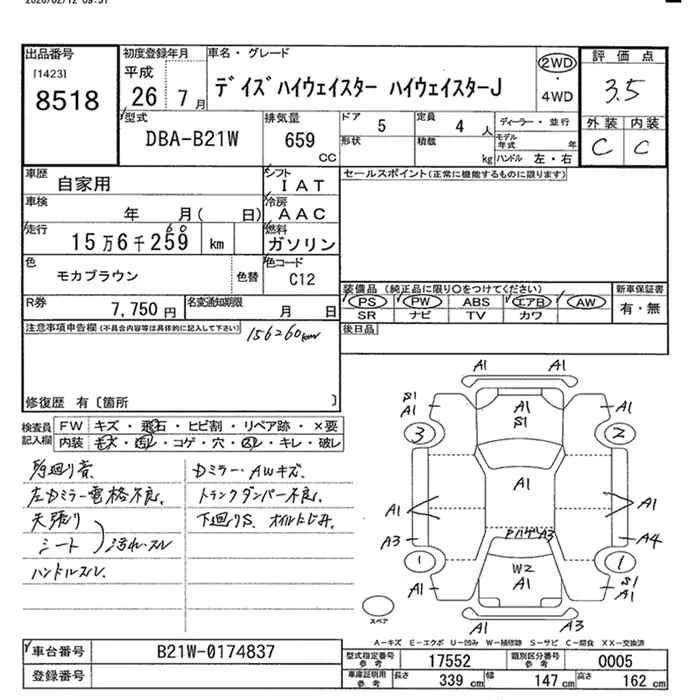 2020/02/12 09:51
出品番号
[1423]
8518
初度登録年月
平成
26 7月
車名・グレード
デイズハイウェイスター ハイウェイスターJ
2WD
・
4WD
評価点
3.5
外装 内装
C C
型式
DBA-B21W
排気量
659
CC
ドア 5
定員 4 人
形状
積載 kg
ディーラー・並行
モデル年式 年
ハンドル 左・右
車歴
自家用
シフト
IAT
車検
年 月( 日)
冷房
AAC
走行
15万6千259 km
60
燃料
ガソリン
色
モカブラウン
色替
色コード
C12
R券
7,750円
名変通知期限
月 日
セールスポイント(正常に機能するものに限ります)
装備品 (純正品に限り○をつけてください)
PS PW ABS エアB AW
SR ナビ TV カワ
新車保証書
有・無
後日品
注意事項申告欄(不具合内容等は具体的に記入して下さい)
156260km
修復歴 有〔箇所 〕
検査員
記入欄
FW キズ・飛石・ヒビ割・リペア跡・×要
内装 ・・コゲ・穴・・キレ・破レ
所廻り音.
左Dミラー電格不良.
天張り
シート
汚れ・スレ
ハンドルスレ.
Dミラー・AWキズ.
トランクダンパー不良.
下廻りS. オイルにじみ.
A1 A1
S1
A1
A1
S1
A1
3 2
A1
A1 A1
A3 A4
A3
1 1
W2
A1
A1
S1
A1
A1 A3
スペア
A−キズ E−エクボ U−凹み W−補修跡 S−サビ C−腐食 XX−交換済
車台番号
B21W-0174837
登録番号
型式指定番号
参考
17552
類別区分番号
参考
0005
車庫証明用
参考
長さ 339 cm
幅 147 cm
高さ 162 cm